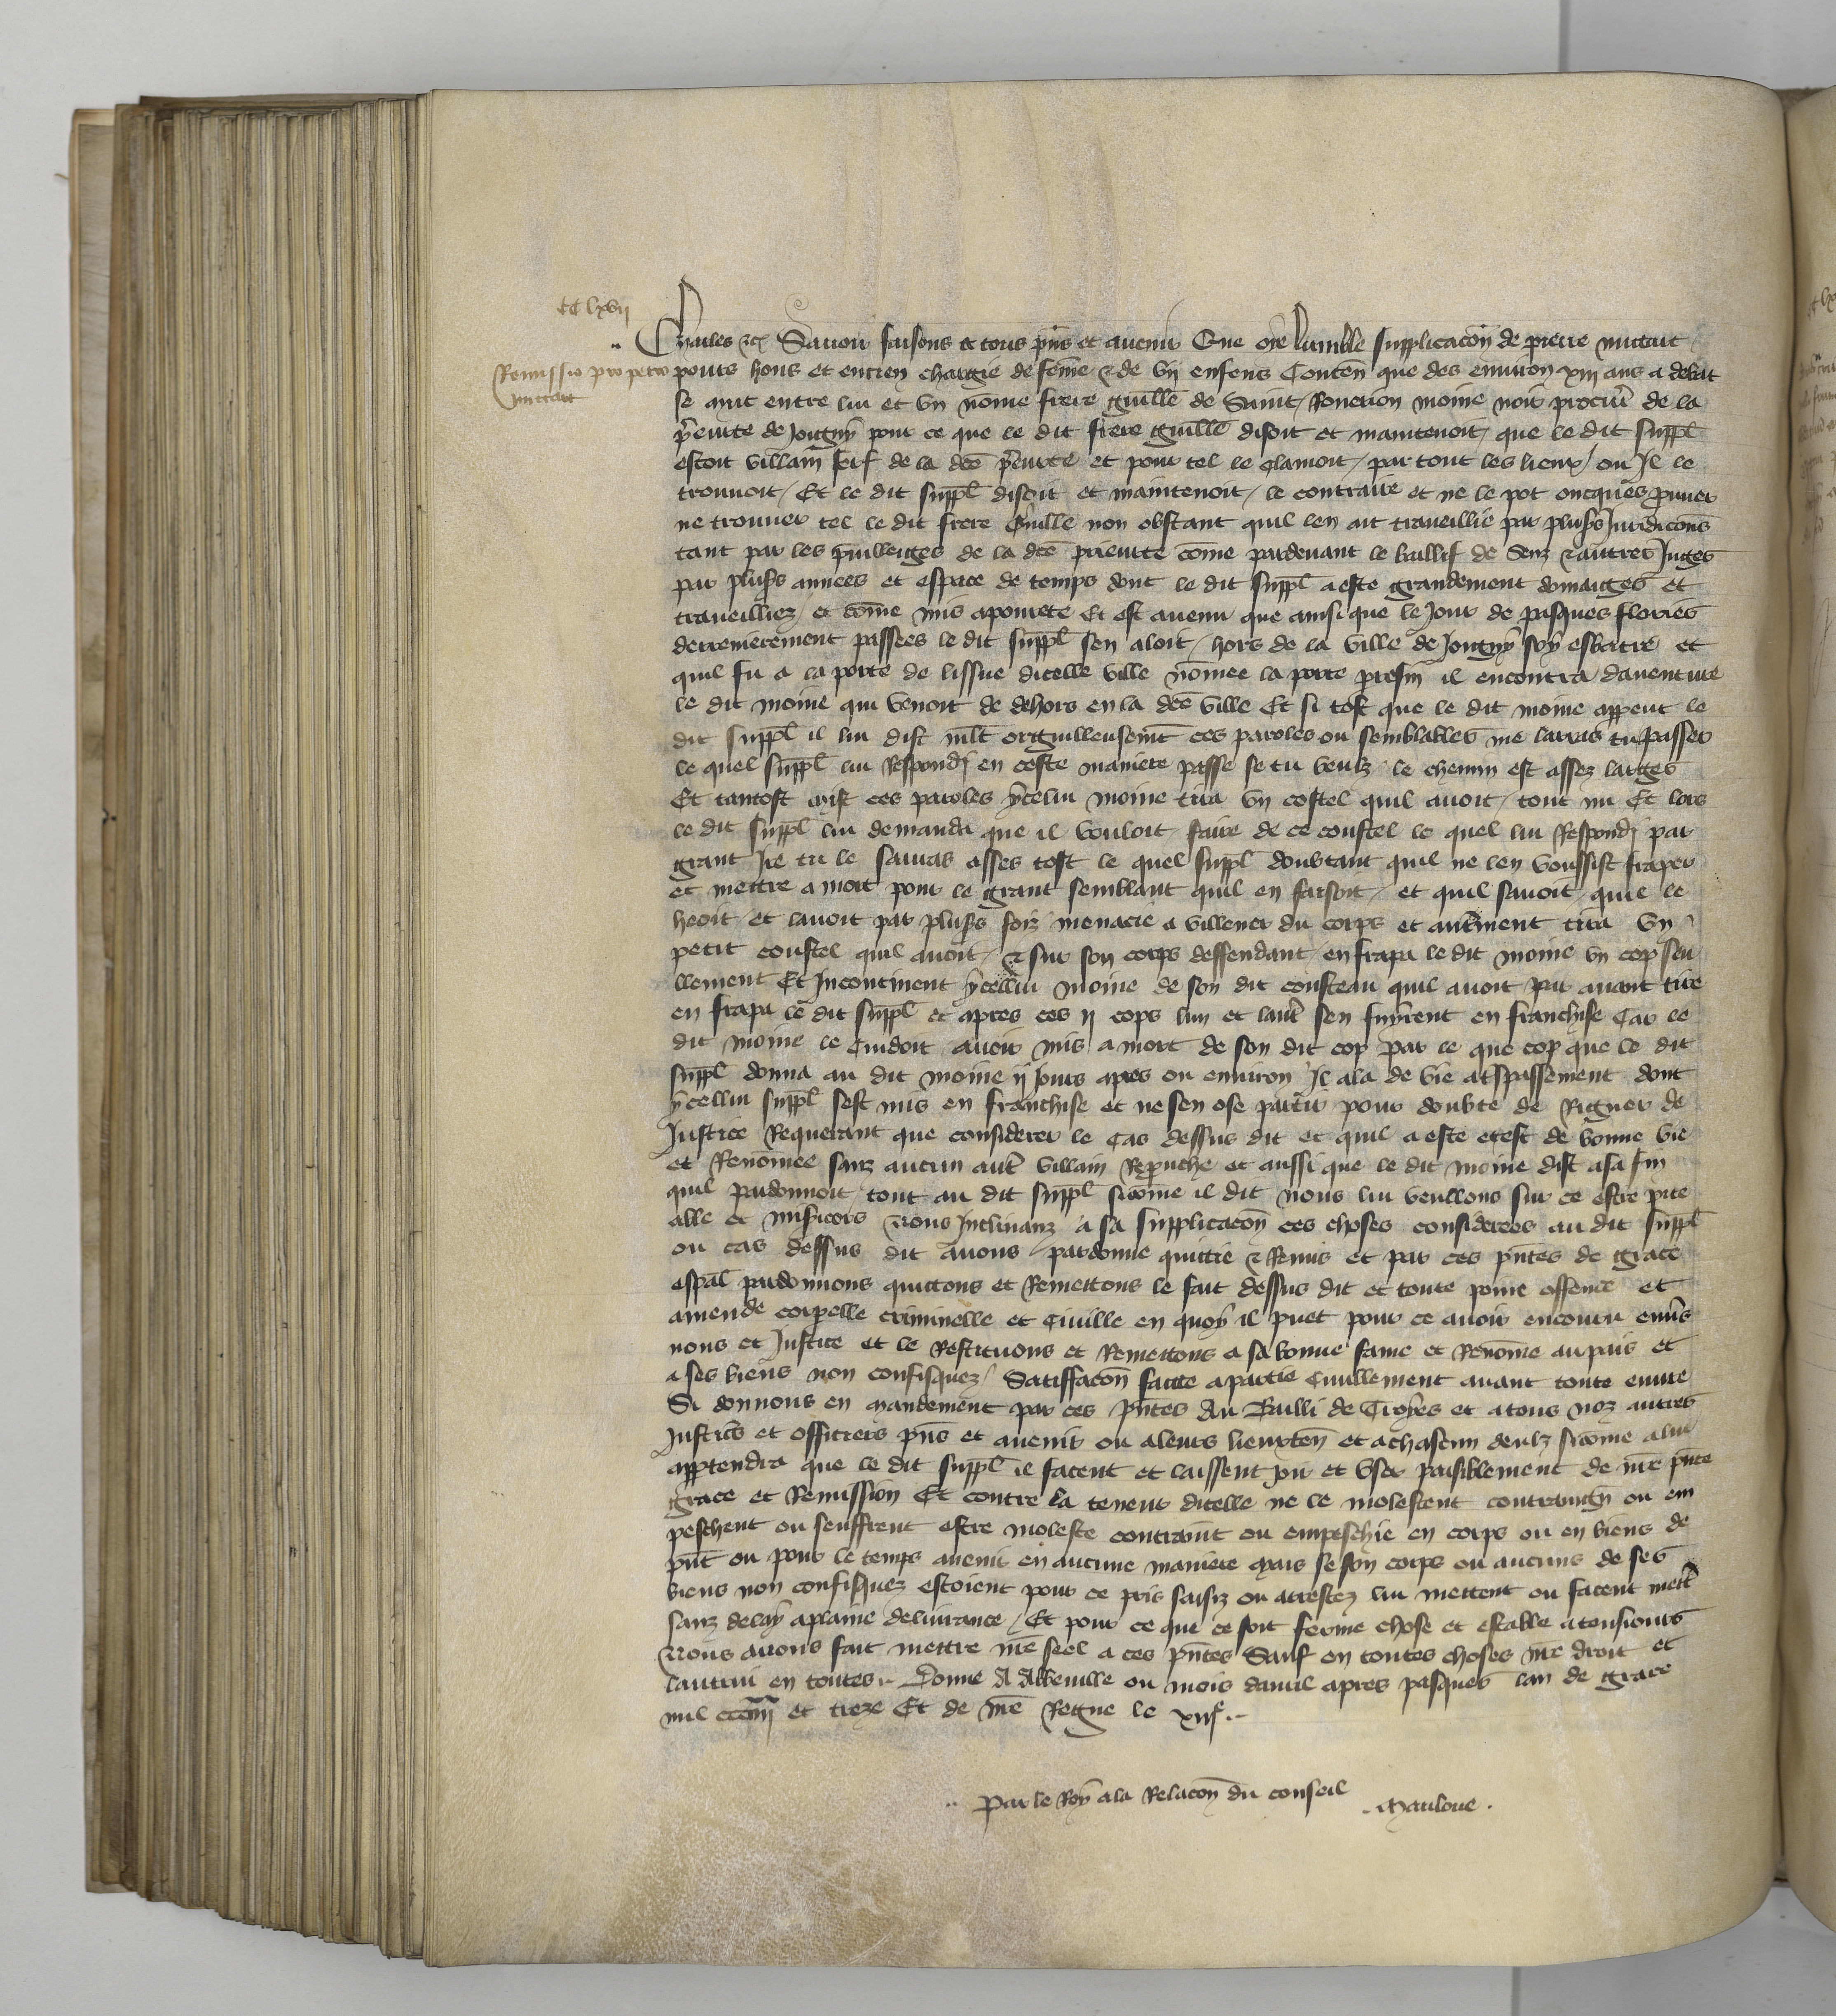 CC lxvij
Charles etc Savoir faisons a tous pñs et avenir Que oye lumble supplicacõn de pierre mictart
Remissio pro petro mictart
povres homs et encien chargie de feme & de vij enfens Conten que des environ xiij ans a debat
se muit entre lui et vn nõme frere guille de Saint moine noir procur̃ de la
p̃eurte de Joigny pour ce que le dit frere guille disoit et maintenoit que le dit suppl
estoit villain serf de la dce p̃eurte et pour tel le clamoit par tout les lieux ou Il le
trouvoit Et le dit suppl disoit et maintenoit le contraire et ne le pot oncques prouver
ne trouver tel le dit frere Guille non obstant quil len ait traveillie par plusrs Juridicõns
tant par les privilleiges de la dce prieurte cõme pardevant le baillif de Senz & autres Juges
par plusrs annees et espace de temps dont le dit suppl a este grandement domaiges et
traveilliez et cõme mis a povrete Et est avenu que ainsi que le Jour de pasques flories
derrenierement passees le dit suppl sen aloit hors de la ville de Joigny soy esbatre et
quil fu a la porte de lissue dicelle ville nõmee la porte il encontra daventure
le dit moine qui venoit de dehors en la dce ville Et si tost que le dit moine apperut le
dit suppl il lui dist mlt orguilleusemt ces paroles ou semblables me lairas tu passer
le quel suppl lui Respondi en ceste maniere passe se tu veulz le chemin est assez larges
Et tantost ces paroles ycelui moine tira vn costel quil avoit tout nu Et lors
le dit suppl lui demanda que il vouloit faire de ce coustel le quel lui Respondi par
grant Ire tu le sauras asses tost le quel suppl doubtant quil ne len voussist fraper
et mettre a mort pour le grant semblant quil en faisoit et quil savoit quie le
heoit et lavoit par plusrs foiz menacie a villener du corps et autrement tira vn
petit coustel quil avoit & sur son corps deffendant en frapa le dit moine vn cop seu
llement Et Incontinent ycellui moine de son dit cousteau quil avoit par avant tire
en frapa le dit suppl et apres ces ij cops lun et laut̃ sen fuyrent en franchise Car le
dit moine le Cuidoit avoir mis a mort de son dit cop par le que cop que le dit
suppl donna au dit moine ij Jours apres ou environ Il ala de vie a t̃spassement dont
ycellui suppl sest mis en franchise et ne sen ose partir pour doubte de Riguer de
Justice Requerant que considerer le Cas dessus dit et quil a este et est de bonne vie
et Renõmee sanz aucun aut̃ villain Reprouche et aussi que le dit moine dist a sa fin
quil pardonnoit tout au dit suppl sicõme il dit nous lui veullons sur ce estre pite
able et misericors Nous Inclinanz a sa supplicacõn ces choses considerees au dit suppl
ou cas dessus dit Avons pardonne quittie & Remis et par ces pñtes de grace
espãl pardonnons quittons et Remettons le fait dessus dit et toute poine offense et
amende corpelle criminelle et Civille en quoy il puet pour ce avoir encouru envs̃
nous et Justice et le Restituons et Remettons a sa bonne fame et Renõme au pais et
a ses biens non confisquez Satiffacõn faitte a partie Civillement avant toute euvre
Si donnons en mandement par ces pñtes Au Bailli de Troyes et a tous noz autres
Justicẽs et officiers pñs et avenir ou a leurs lieuxten et a chascun deulz sicõme a lui
apptendra que le dit suppl il facent et laissent joir et vser paisiblement de nr̃e pñte
grace et Remission Et contre la teneur dicelle ne le molestent contraingn̄ ou em
peschent ou seuffrent estre moleste contraint ou empeschie en corps ou en biens de
pñt ou pour le temps avenir en aucune maniere Mais se son corps ou aucuns de ses
biens non confisquez estoient pour ce pris saisiz ou arrestez lui mettent ou facent mett̃
sanz delay a plaine delivrance Et pour ce que ce soit ferme chose et estable a tousiours
Nous avons fait mettre nr̃e seel a ces pñtes Sauf en toutes choses nr̃e droit et
lautrui en toutes Donne A Abbeville ou mois davril apres pasques lan de grace
mil ccciiij^xx et treze Et de nr̃e Regne le xiij^e
Par le Roy a la Relacõn du conseil
Mauloue